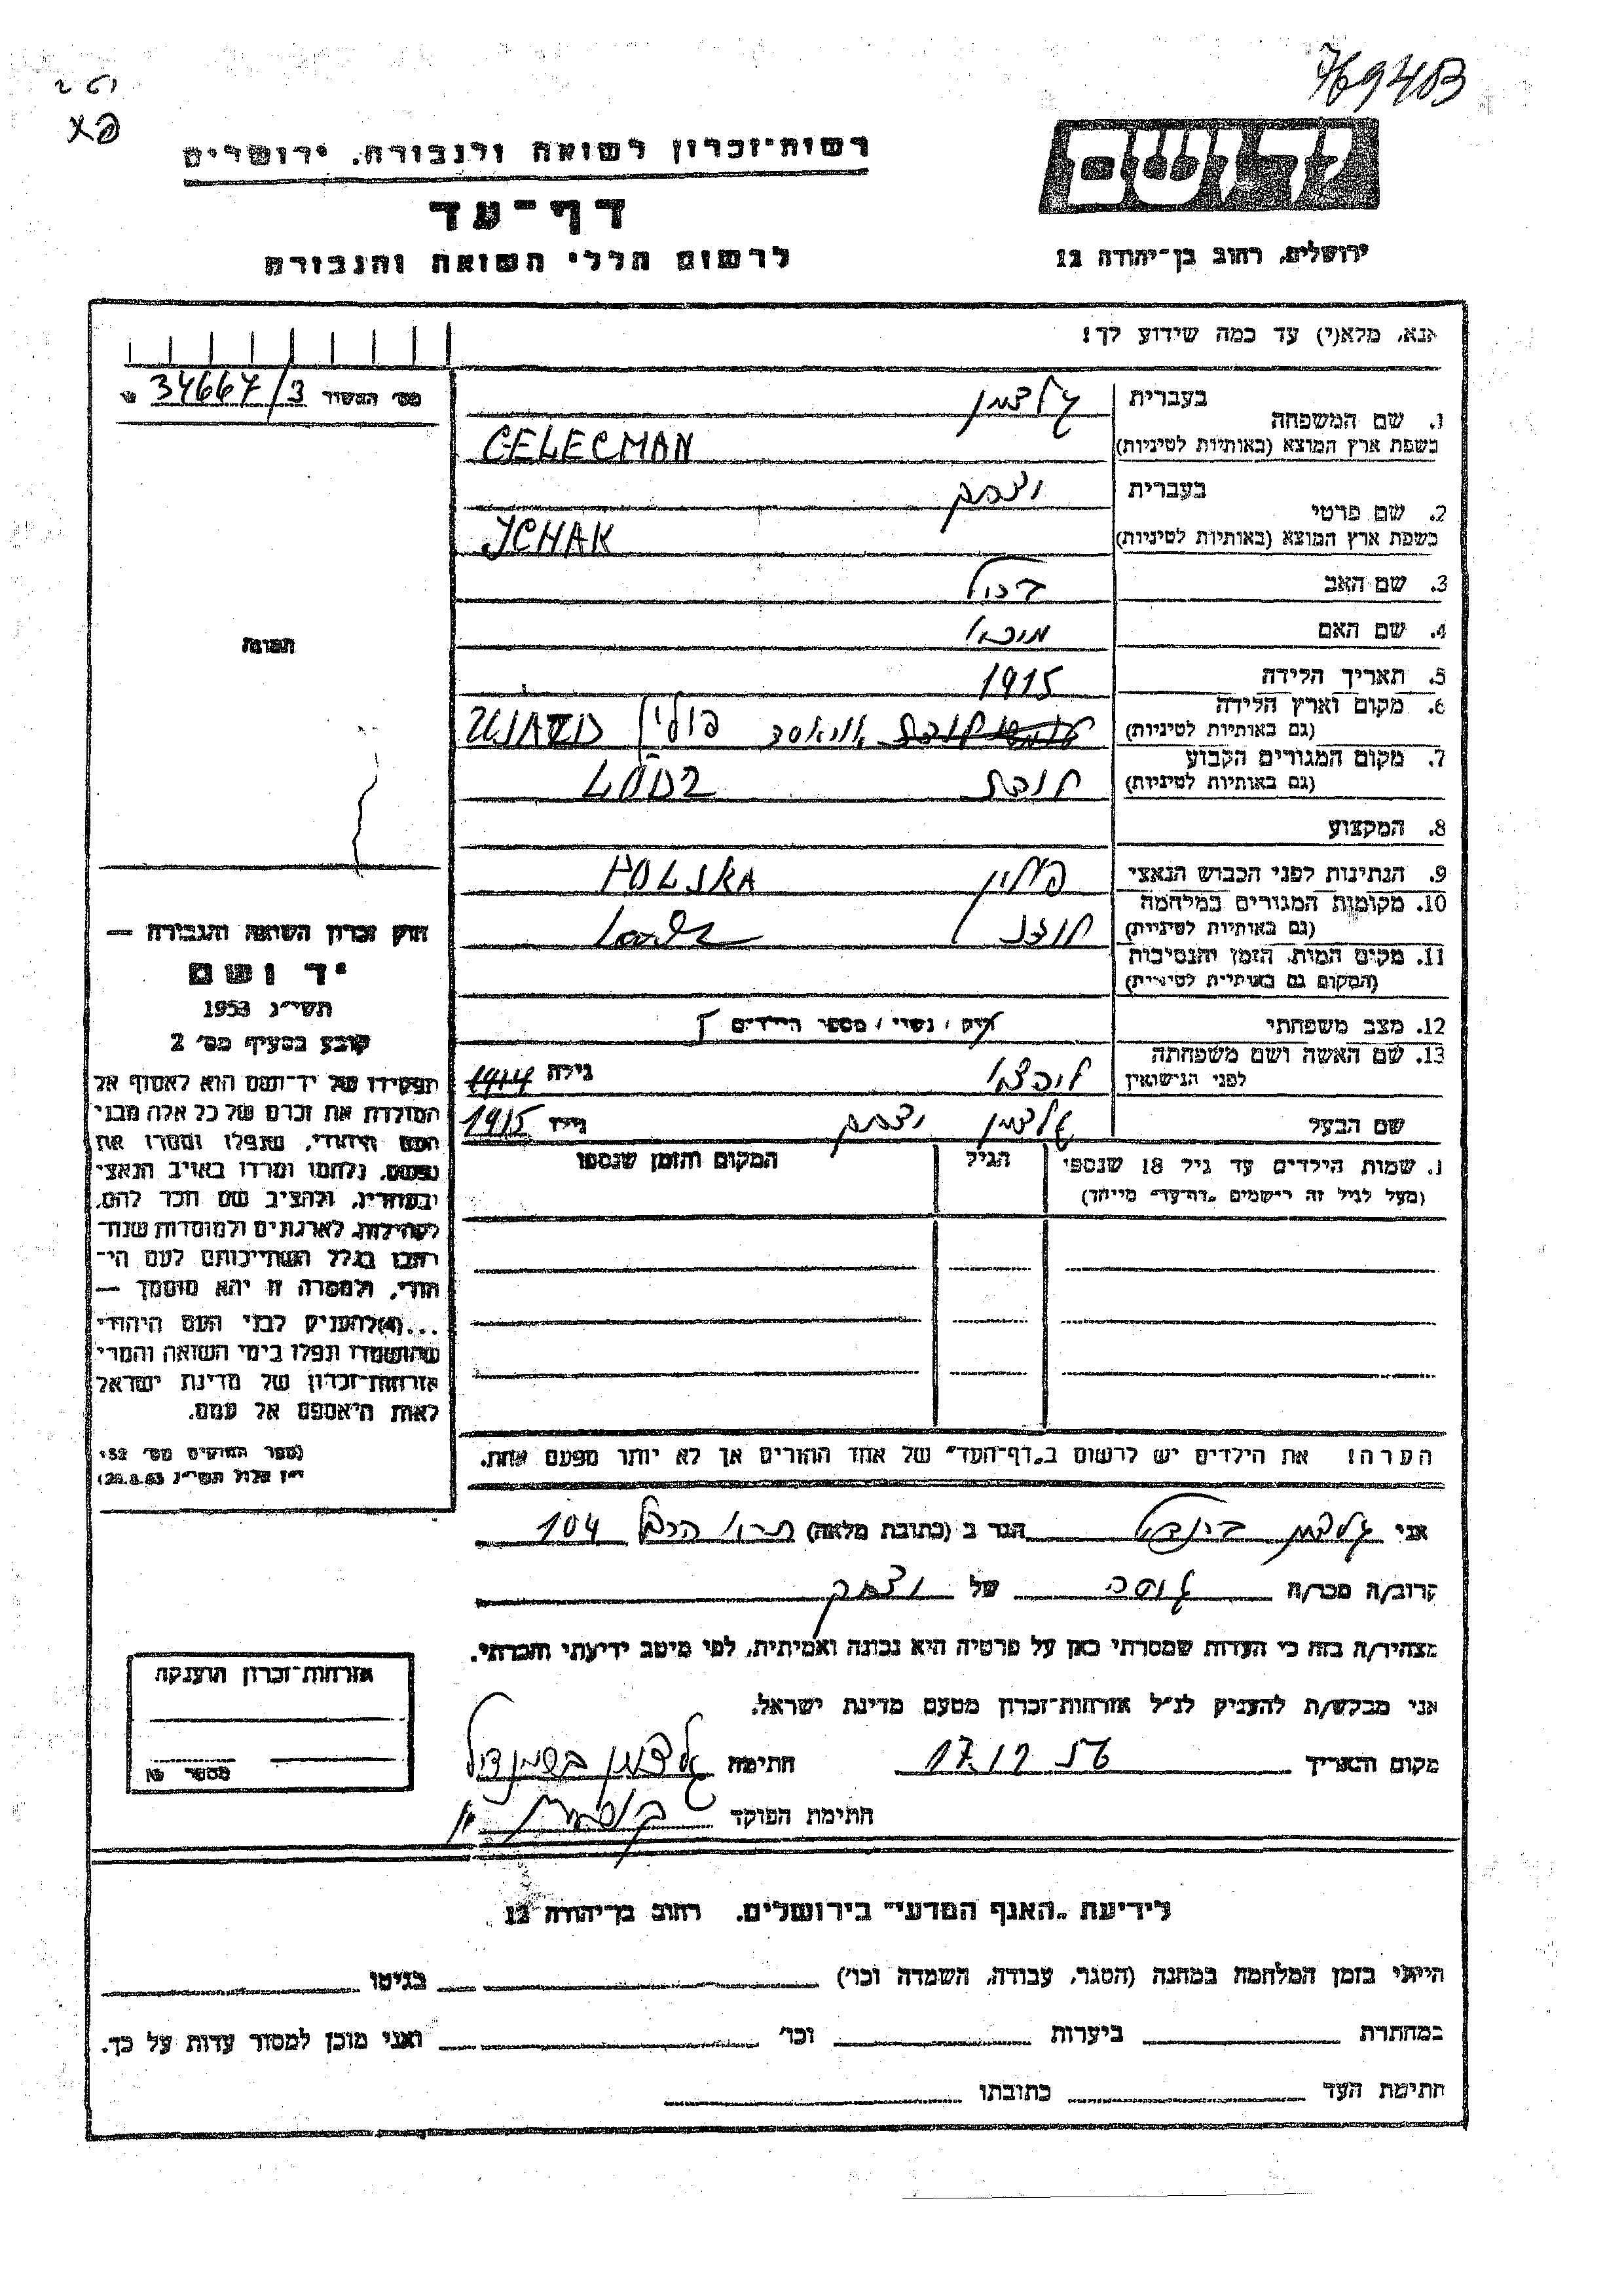 769403
רשות־זכרון לשואה ולגבורה, ירושלים
דף־עד
לרשום חללי השואה והגבורה
יד ושם
ירושלים, רחוב בן־יהודה 12
אנא, מלא(י) עד כמה שידוע לך!
מס׳ האשור 34667/3
1. שם המשפחה
בעברית גלצמן
בשפת ארץ המוצא (באותיות לטיניות) GELECMAN
2. שם פרטי
בעברית יצחק
בשפת ארץ המוצא (באותיות לטיניות) JCHAK
3. שם האב
4. שם האם
5. תאריך הלידה 1915
6. מקום וארץ הלידה
(גם באותיות לטיניות) פולין UJAZD
7. מקום המגורים הקבוע
(גם באותיות לטיניות) LODZ
8. המקצוע
9. הנתינות לפני הכבוש הנאצי פולין POLSKA
10. מקומות המגורים במלחמה
(גם באותיות לטיניות) לודז Lodz
11. מקום המות, הזמן והנסיבות
(המקום גם באותיות לטיניות)
12. מצב משפחתי רוק / נשוי / מספר הילדים
13. שם האשה ושם משפחתה
לפני הנישואין גילה 1914
שם הבעל גלצמן יצחק גילו 1915
1. שמות הילדים עד גיל 18 שנספו
(מעל לגיל זה רישמים "דף־עד" מייחד)
הגיל
המקום והזמן שנספו
הערה! את הילדים יש לרשום ב"דף־העד" של אחד ההורים אך לא יותר מפעם אחת.
תמונה
חוק זכרון השואה והגבורה —
יד ושם
תשי״ג 1953
קובע בסעיף מס׳ 2
תפקידו של יד־ושם הוא לאסוף אל
המולדת את זכרם של כל אלה מבני
העם היהודי, שנפלו ומסרו את
נפשם, נלחמו ומרדו באויב הנאצי
ובעוזריו, ולהציב שם וזכר להם,
לקהילות, לארגונים ולמוסדות שנח־
רבו בגלל השתייכותם לעם הי־
הודי, ולמטרה זו יהא מוסמך —
...(4) להעניק לבני העם היהודי
שהושמדו ונפלו בימי השואה והמרי
אזרחות־זכרון של מדינת ישראל
לאות היאספם אל עמם.
(ספר החוקים מס׳ 132
י״ז אלול תשי״ג 28.8.53)
אני גלצמן הגר ב (כתובת מלאה) 104
קרוב/ה מכר/ה של יצחק
מצהיר/ה בזה כי העדות שמסרתי כאן על פרטיה היא נכונה ואמיתית, לפי מיטב ידיעתי והכרתי.
אני מבקש/ת להעניק לנ״ל אזרחות־זכרון מטעם מדינת ישראל.
מקום ותאריך 17.12.56 חתימה גלצמן
חתימת הפוקד
אזרחות־זכרון הוענקה
מספר №
לידיעת "האגף המדעי" בירושלים, רחוב בן־יהודה 12
הייתי בזמן המלחמה במחנה (הסגר, עבודה, השמדה וכו׳) בגיטו
במחתרת ביערות וכו׳ ואני מוכן למסור עדות על כך.
חתימת העד כתובתו